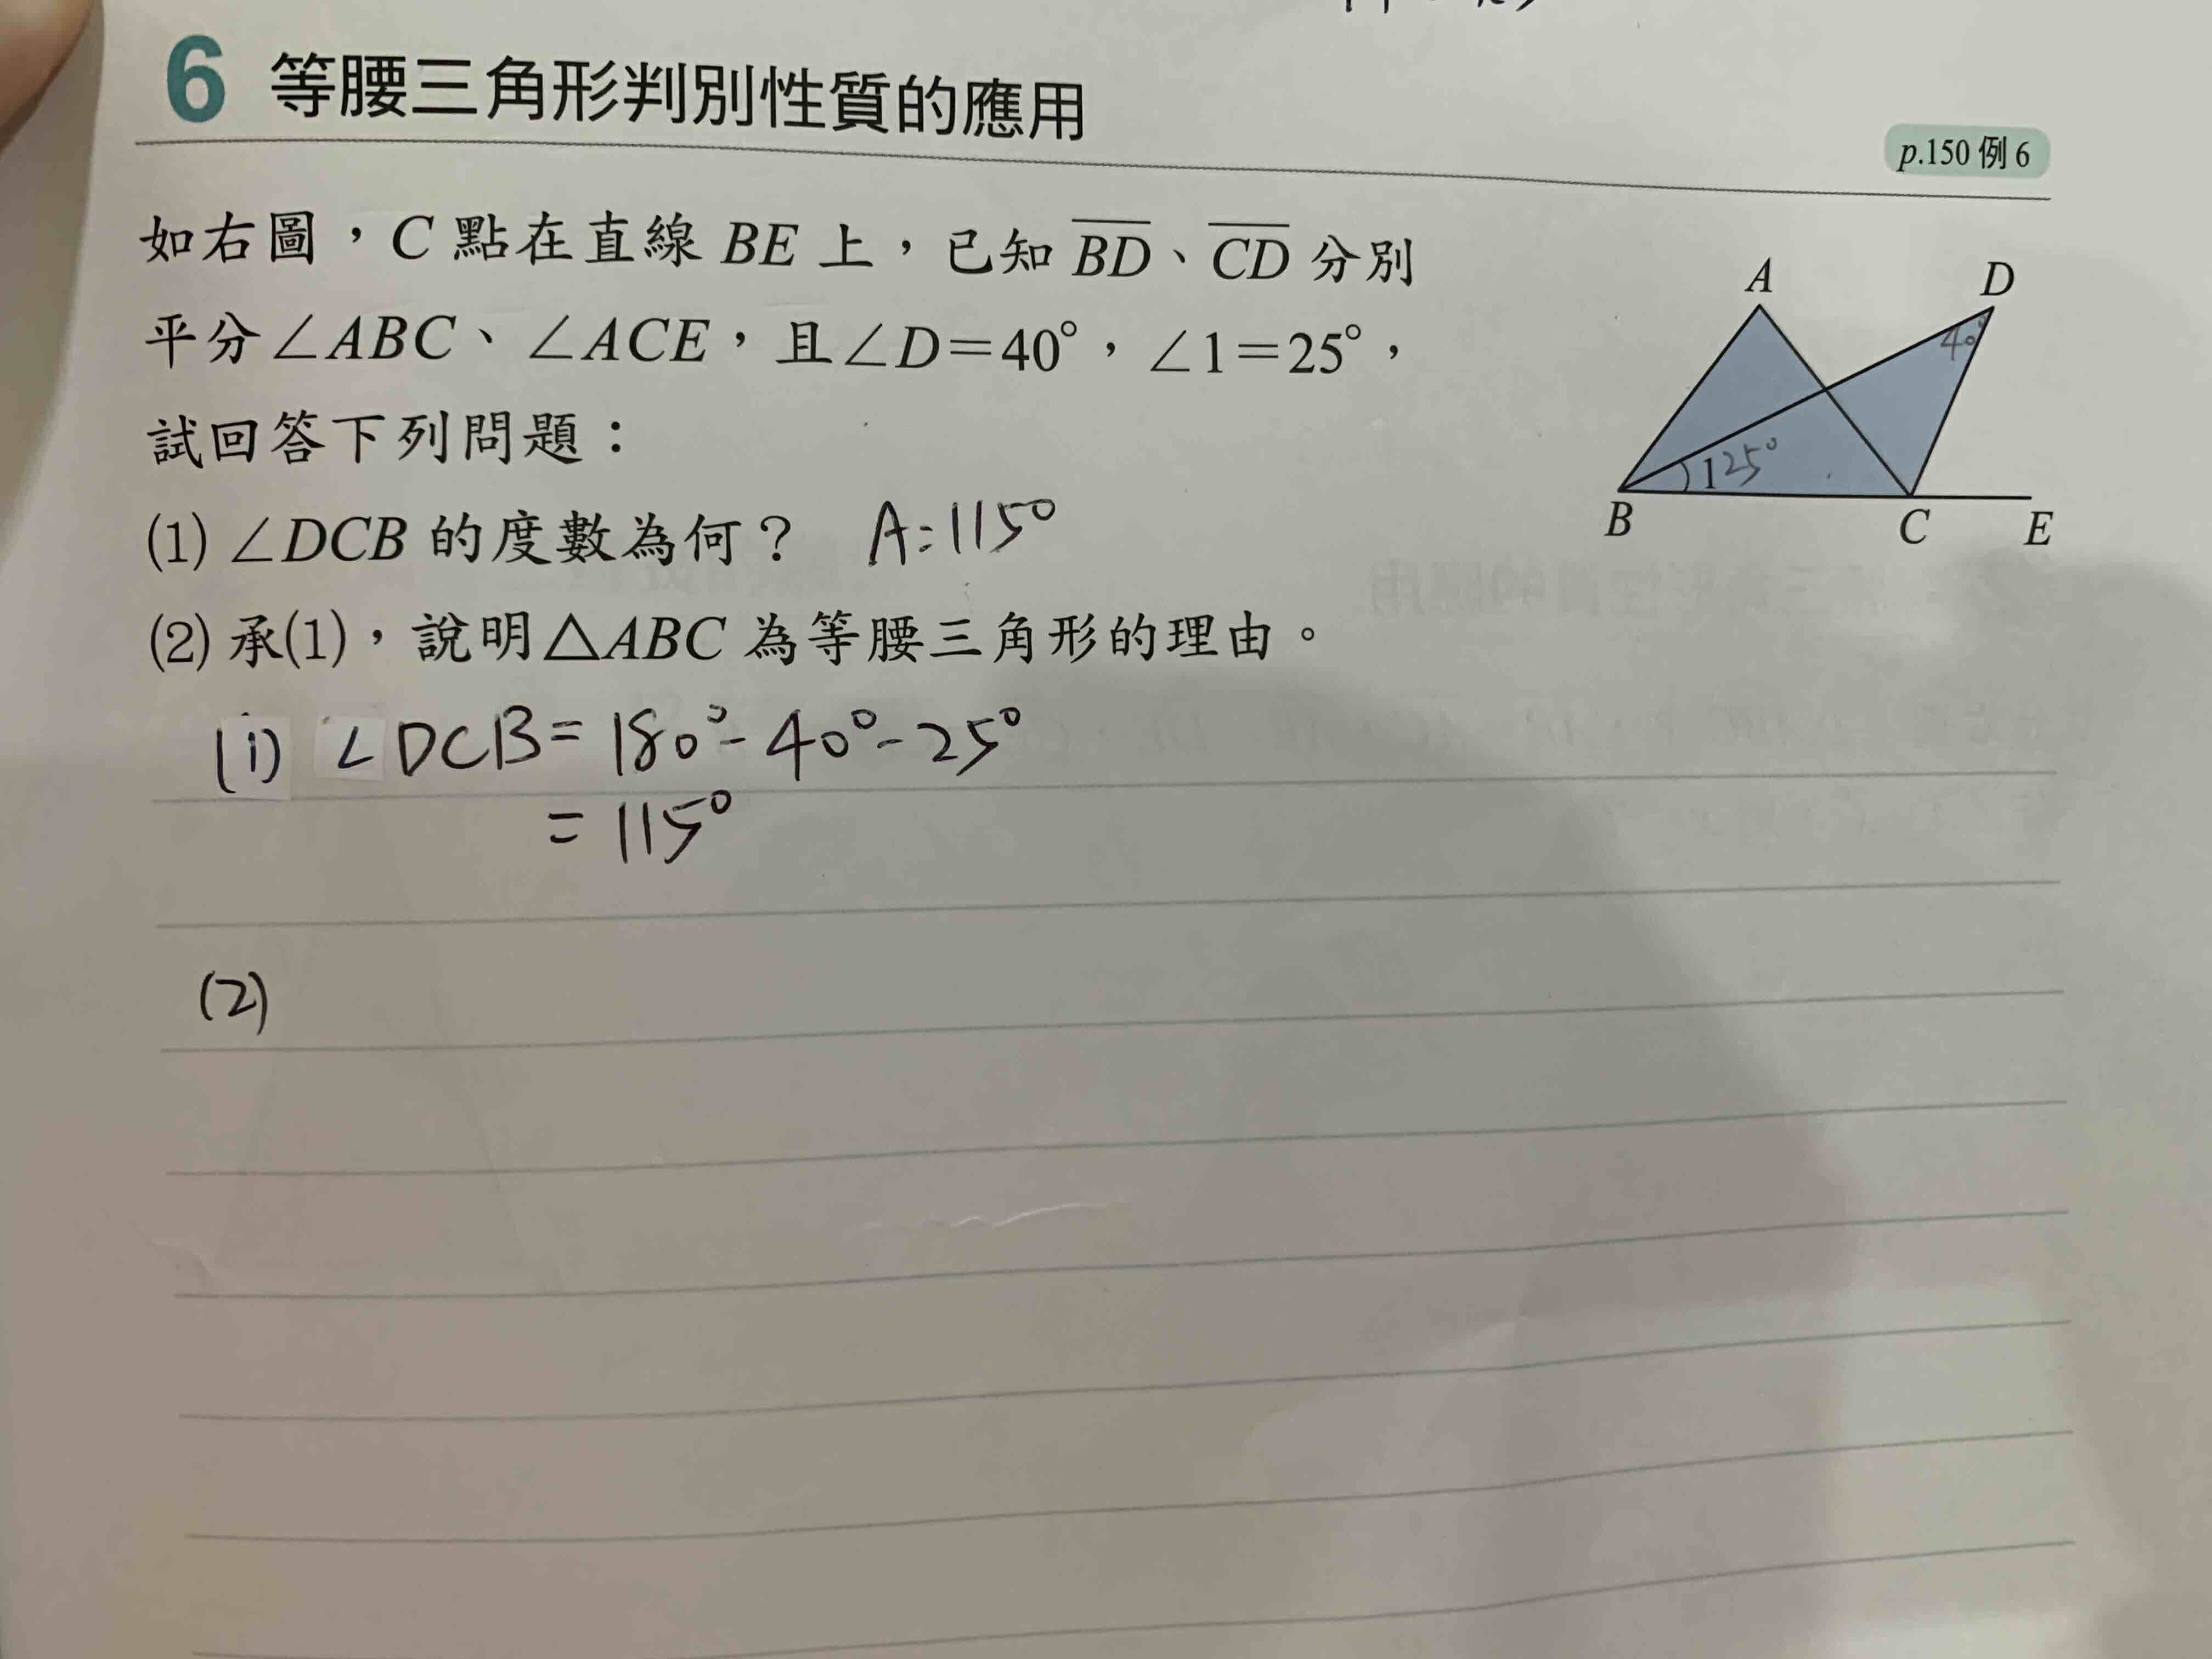 6 等腰三角形判別性質的應用
p.150 例6
如右圖，C 點在直線 BE 上，已知 \overline{BD}、\overline{CD} 分別
平分∠ABC、∠ACE，且∠D＝40°，∠1＝25°，
試回答下列問題：
(1) ∠DCB 的度數為何？ A:115°
(2) 承(1)，說明△ABC 為等腰三角形的理由。
A
D
40°
1 25°
B
C
E
(1) ∠DCB = 180° - 40° - 25°
= 115°
(2)